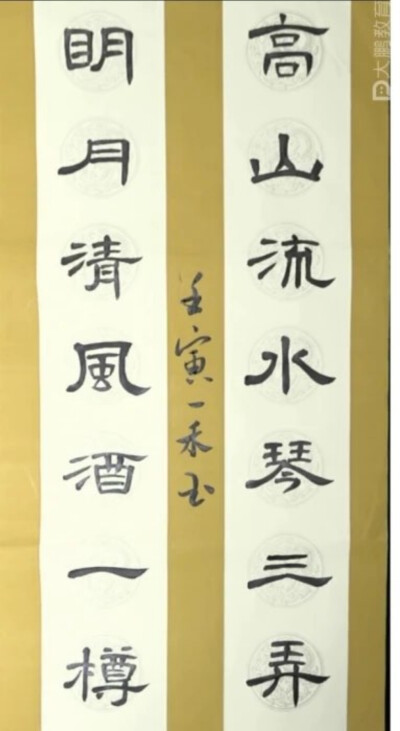 高山流水琴三弄
明月清風酒一樽
壬寅一禾书
大鹏教育